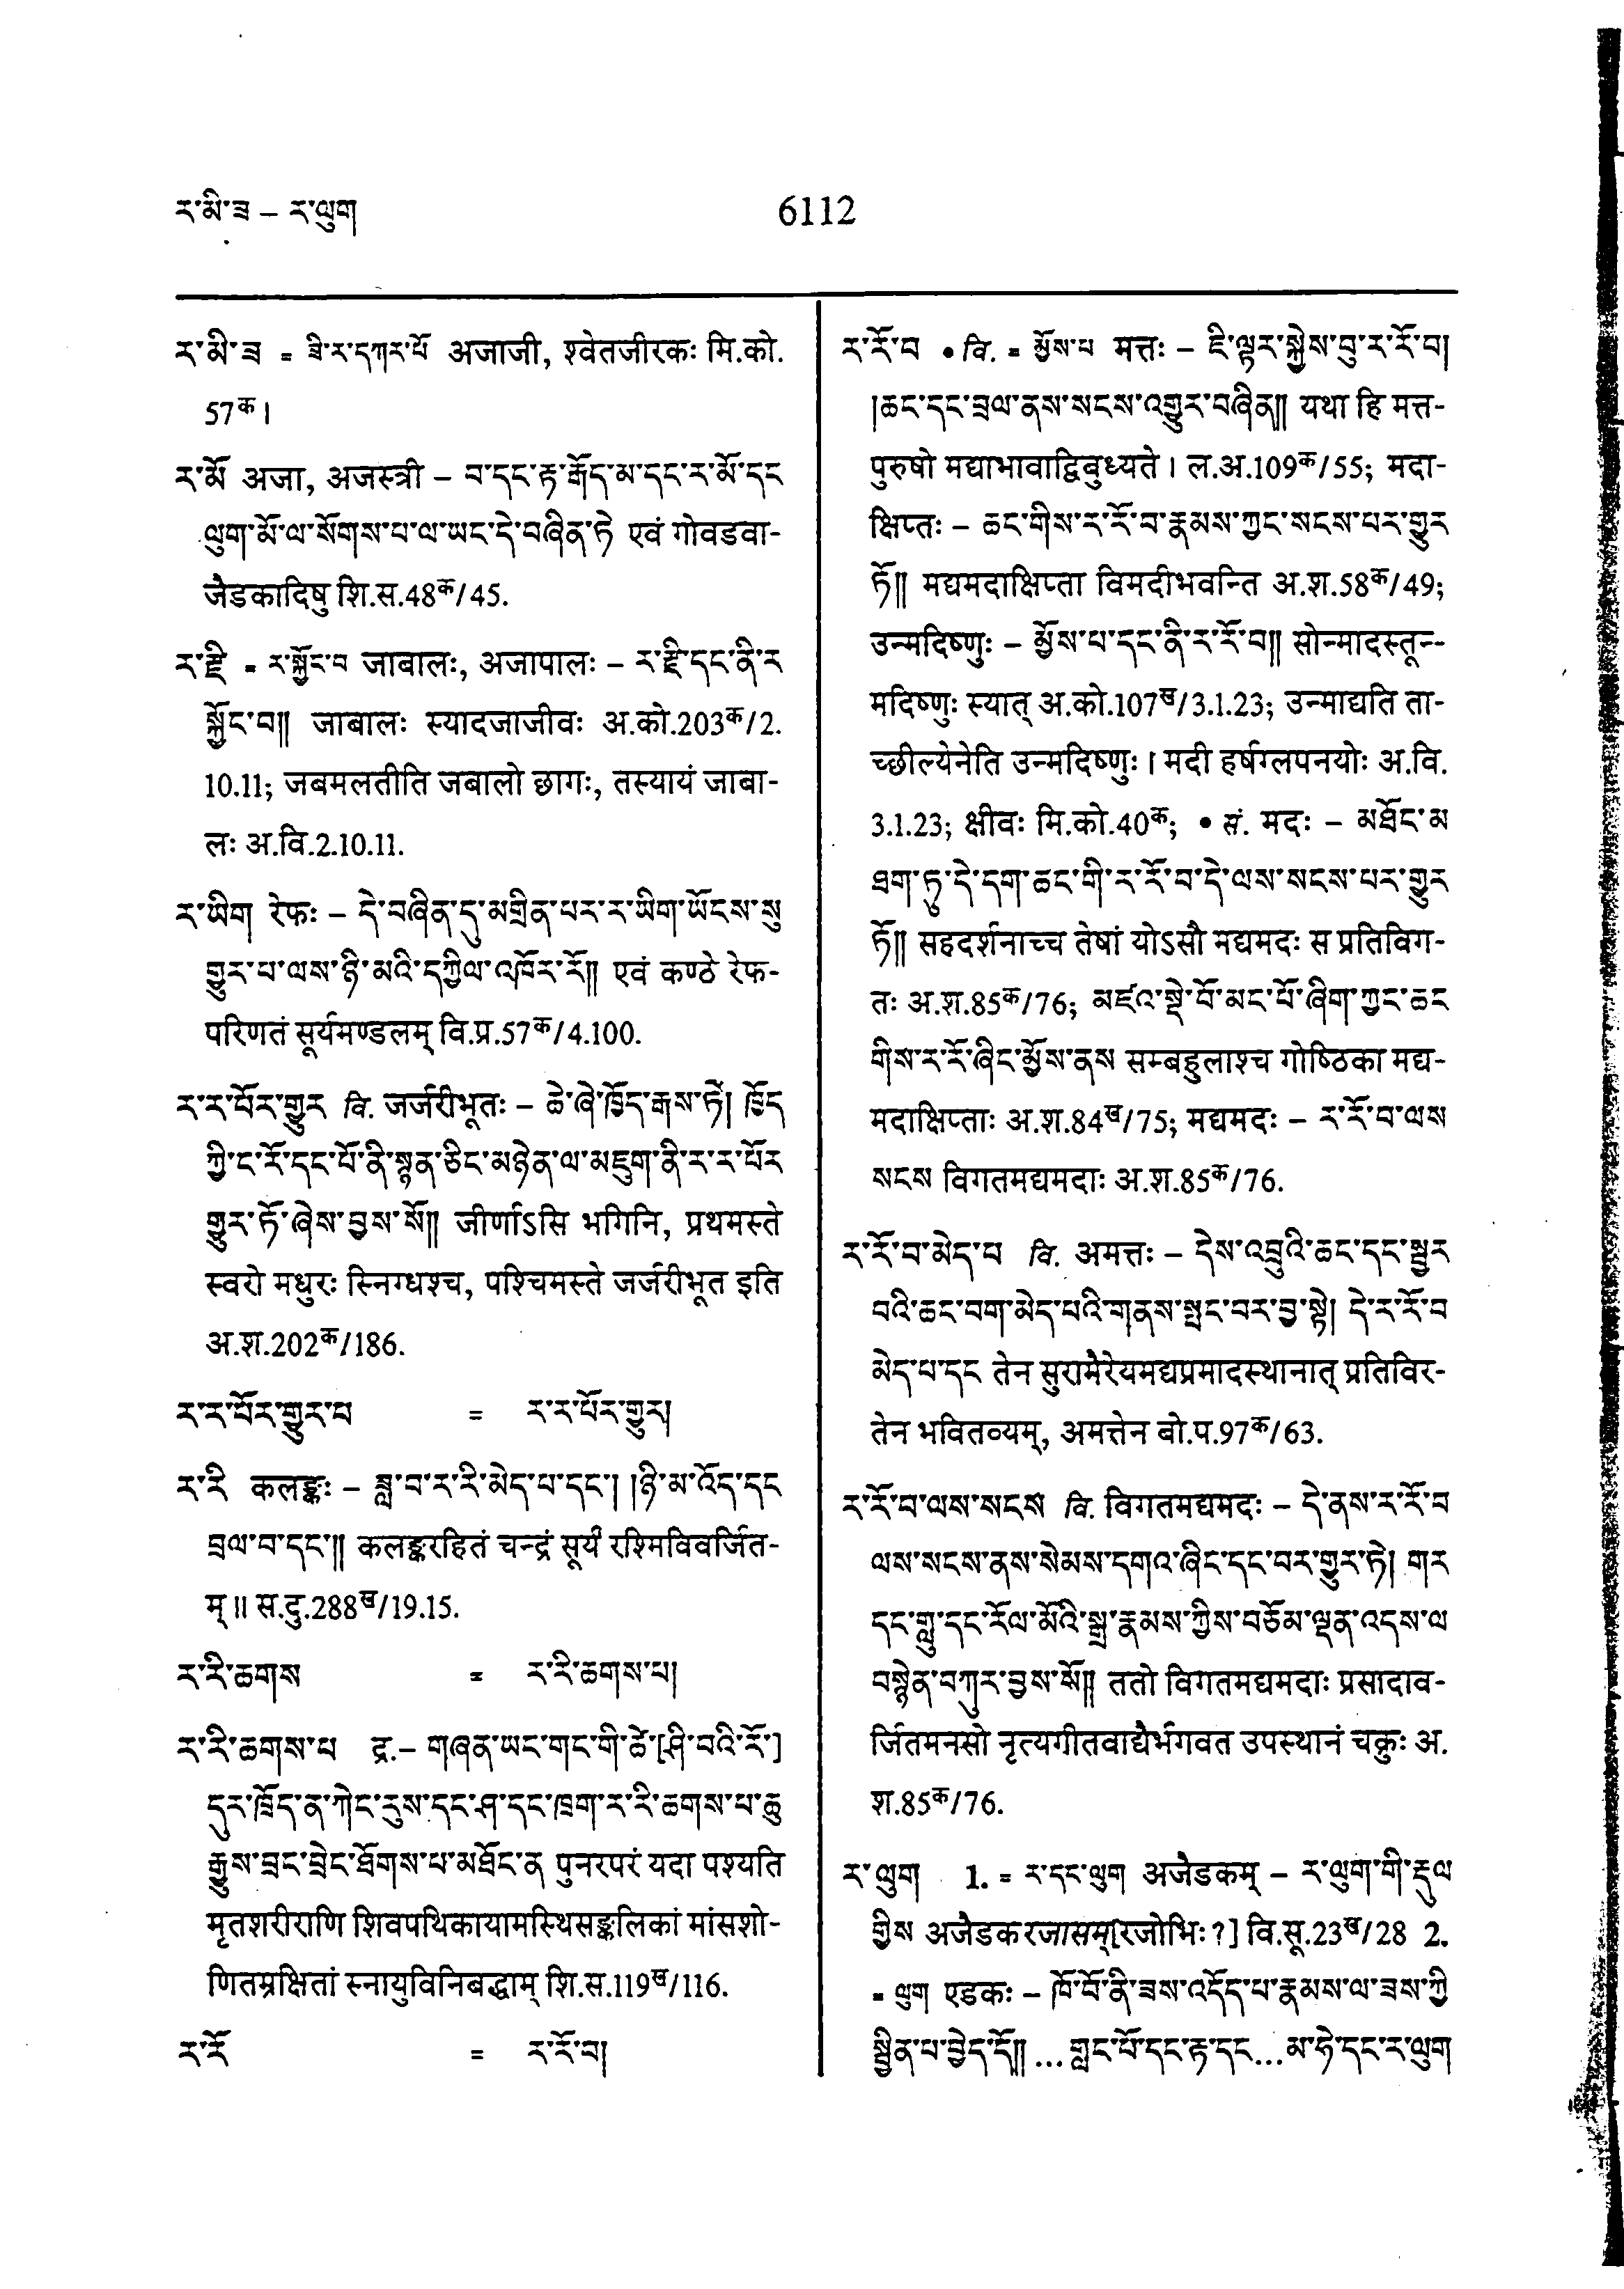 ར་མི་ཟ – ར་ལུག
6112
ར་མི་ཟ = ཟི་ར་དཀར་པོ अजाजी, श्वेतजीरकः मि.को.
57क।
ར་མོ अजा, अजस्त्री – བ་དང་རྟ་རྒོད་མ་དང་ར་མོ་དང
ལུག་མོ་ལ་སོགས་པ་ལ་ཡང་དེ་བཞིན་ཏེ एवं गोवडवा-
जैडकादिषु शि.स.48क/45.
ར་རྫི = ར་སྐྱོང་བ जाबालः, अजापालः – ར་རྫི་དང་ནི་ར
སྐྱོང་བ༎ जाबालः स्यादजाजीवः अ.को.203क/2.
10.11; जबमलतीति जबालो छागः, तस्यायं जाबा-
लः अ.वि.2.10.11.
ར་ཡིག रेफः – དེ་བཞིན་དུ་མགྲིན་པར་ར་ཡིག་ཡོངས་སུ
གྱུར་པ་ལས་ཉི་མའི་དཀྱིལ་འཁོར་རོ༎ एवं कण्ठे रेफ-
परिणतं सूर्यमण्डलम् वि.प्र.57क/4.100.
ར་ར་པོར་གྱུར वि. जर्जरीभूतः – ཆེ་ཞེ་ཁྱོད་རྒས་ཏེ། ཁྱོད
ཀྱི་ང་རོ་དང་པོ་ནི་སྙན་ཅིང་མཉེན་ལ་མཇུག་ནི་ར་ར་པོར
གྱུར་ཏོ་ཞེས་བྱས་སོ༎ जीर्णाऽसि भगिनि, प्रथमस्ते
स्वरो मधुरः स्निग्धश्च, पश्चिमस्ते जर्जरीभूत इति
अ.श.202क/186.
ར་ར་པོར་གྱུར་པ = ར་ར་པོར་གྱུར།
ར་རི कलङ्कः – ཟླ་བ་ར་རི་མེད་པ་དང་། །ཉི་མ་འོད་དང
བྲལ་བ་དང་༎ कलङ्करहितं चन्द्रं सूर्यं रश्मिविवर्जित-
म्॥ स.दु.288ख/19.15.
ར་རི་ཆགས = ར་རི་ཆགས་པ།
ར་རི་ཆགས་པ द्र.– གཞན་ཡང་གང་གི་ཚེ་[ཤི་བའི་རོ་]
དུར་ཁྲོད་ན་ཀེང་རུས་དང་ཤ་དང་ཁྲག་ར་རི་ཆགས་པ་ཆུ
རྒྱུས་བྲང་བྲེང་ཐོགས་པ་མཐོང་ན पुनरपरं यदा पश्यति
मृतशरीराणि शिवपथिकायामस्थिसङ्कलिकां मांसशो-
णितम्रक्षितां स्नायुविनिबद्धाम् शि.स.119ख/116.
ར་རོ = ར་རོ་བ།
ར་རོ་བ • वि. = མྱོས་པ मत्तः – ཇི་ལྟར་སྐྱེས་བུ་ར་རོ་བ།
།ཆང་དང་བྲལ་ནས་སངས་འགྱུར་བཞིན༎ यथा हि मत्त-
पुरुषो मद्याभावाद्विबुध्यते। ल.अ.109क/55; मदा-
क्षिप्तः – ཆང་གིས་ར་རོ་བ་རྣམས་ཀྱང་སངས་པར་གྱུར
ཏོ༎ मद्यमदाक्षिप्ता विमदीभवन्ति अ.श.58क/49;
उन्मदिष्णुः – མྱོས་པ་དང་ནི་ར་རོ་བ༎ सोन्मादस्तून्-
मदिष्णुः स्यात् अ.को.107ख/3.1.23; उन्माद्यति ता-
च्छील्येनेति उन्मदिष्णुः। मदी हर्षग्लपनयोः अ.वि.
3.1.23; क्षीवः मि.को.40क; • सं. मदः – མཐོང་མ
ཐག་ཏུ་དེ་དག་ཆང་གི་ར་རོ་བ་དེ་ལས་སངས་པར་གྱུར
ཏོ༎ सहदर्शनाच्च तेषां योऽसौ मद्यमदः स प्रतिविग-
तः अ.श.85क/76; མཛའ་སྡེ་པོ་མང་པོ་ཞིག་ཀྱང་ཆང
གིས་ར་རོ་ཞིང་མྱོས་ནས सम्बहुलाश्च गोष्ठिका मद्य-
मदाक्षिप्ताः अ.श.84ख/75; मद्यमदः – ར་རོ་བ་ལས
སངས विगतमद्यमदाः अ.श.85क/76.
ར་རོ་བ་མེད་པ वि. अमत्तः – དེས་འབྲུའི་ཆང་དང་སྦྱར
བའི་ཆང་བག་མེད་པའི་གནས་སྤང་བར་བྱ་སྟེ། དེ་ར་རོ་བ
མེད་པ་དང तेन सुरामैरेयमद्यप्रमादस्थानात् प्रतिविर-
तेन भवितव्यम्, अमत्तेन बो.प.97क/63.
ར་རོ་བ་ལས་སངས वि. विगतमद्यमदः – དེ་ནས་ར་རོ་བ
ལས་སངས་ནས་སེམས་དགའ་ཞིང་དང་བར་གྱུར་ཏེ། གར
དང་གླུ་དང་རོལ་མོའི་སྒྲ་རྣམས་ཀྱིས་བཅོམ་ལྡན་འདས་ལ
བསྙེན་བཀུར་བྱས་སོ༎ ततो विगतमद्यमदाः प्रसादाव-
र्जितमनसो नृत्यगीतवाद्यैर्भगवत उपस्थानं चक्रुः अ.
श.85क/76.
ར་ལུག 1. = ར་དང་ལུག अजैडकम् – ར་ལུག་གི་རྡུལ
གྱིས अजैडकरजासम्[रजोभिः?] वि.सू.23ख/28 2.
= ལུག एडकः – ཁོ་བོ་ནི་ཟས་འདོད་པ་རྣམས་ལ་ཟས་ཀྱི
སྦྱིན་པ་བྱེད་དོ༎ ...གླང་པོ་དང་རྟ་དང...མ་ཧེ་དང་ར་ལུག